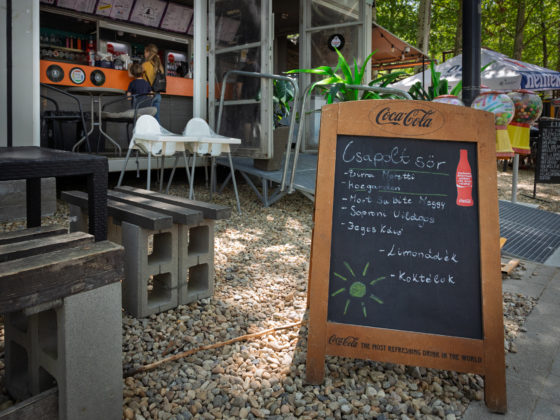 Coca-Cola
Csapolt sör
-Birra Moretti
-hoegarden
-Mort Subite Meggy
-Soproni Világos
-Jeges Kávé
-Limonádék
-Koktélok
Coca-Cola THE MOST REFRESHING DRINK IN THE WORLD